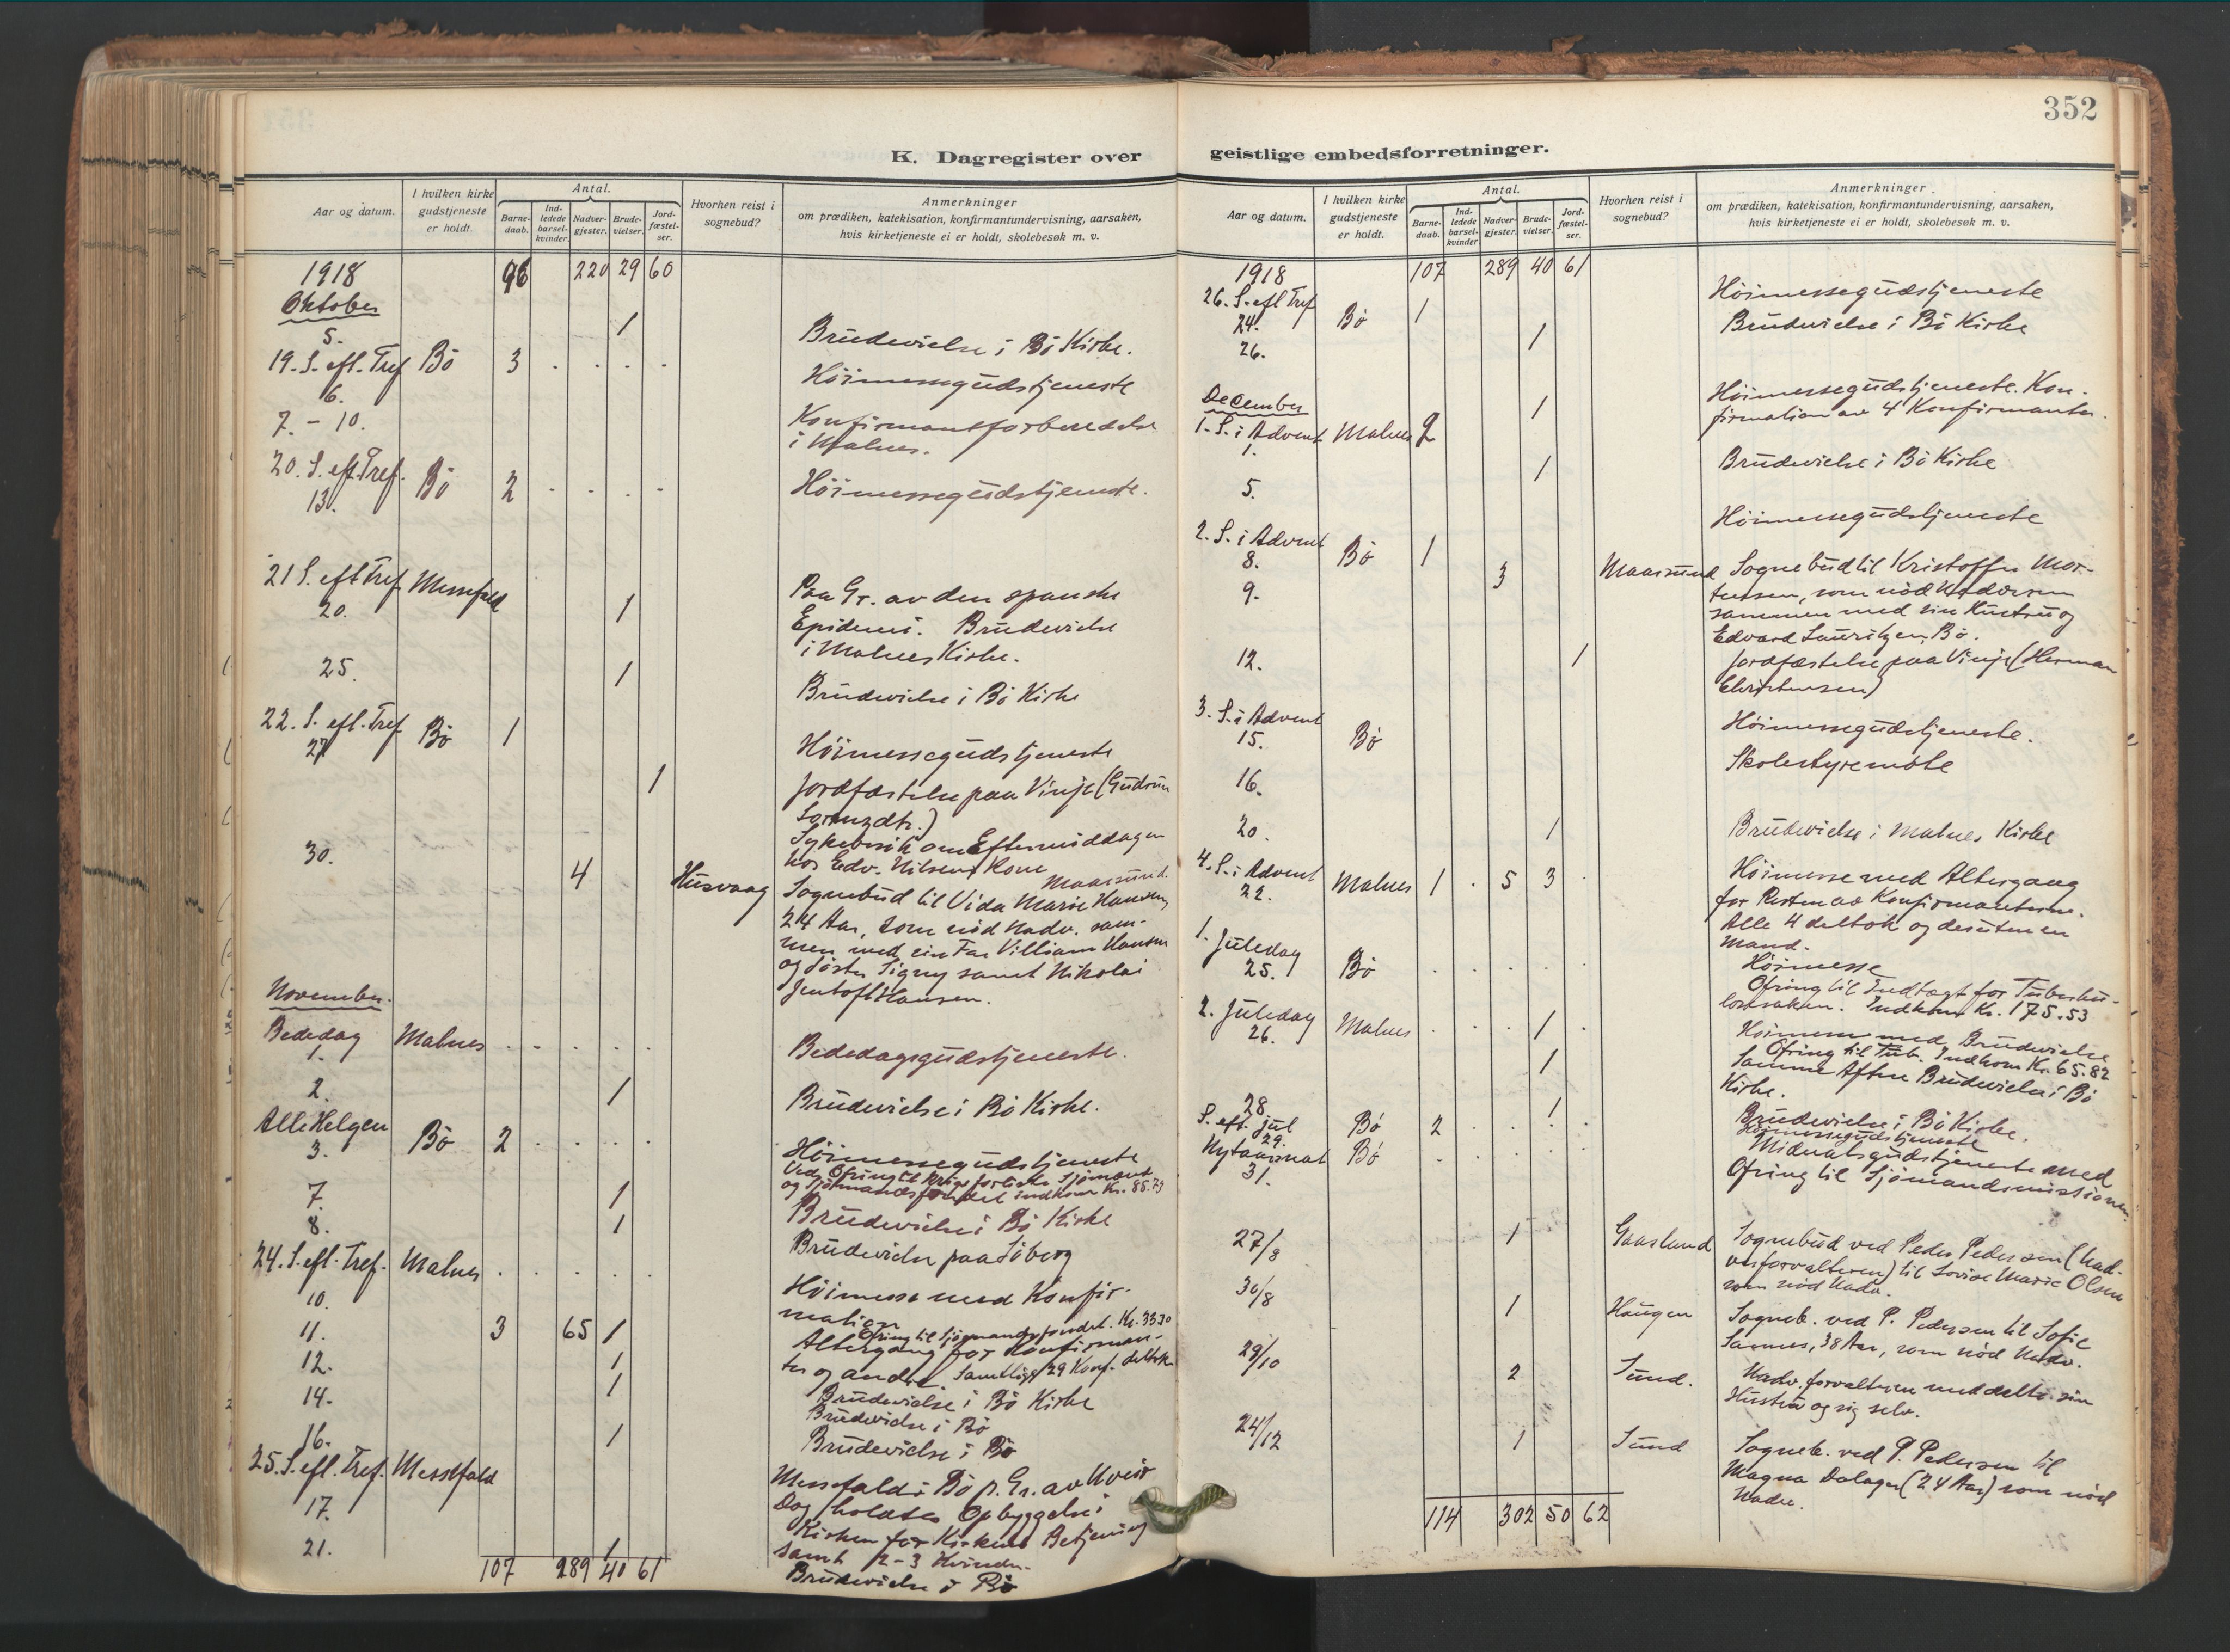 352
K. Dagregister over geistlige embedsforretninger.
Aar og datum.
I hvilken kirke gudstjeneste er holdt.
Antal.
Barne-daab.
Ind-ledede barsel-kvinder.
Nadver-gjester.
Brude-vielser.
Jord-fæstel-ser.
Hvorhen reist i sognebud?
Anmerkninger
om prædiken, katekisation, konfirmantundervisning, aarsaken,
hvis kirketjeneste ei er holdt, skolebesøk m. v.
1918 96 220 29 60
Oktober
5. 1 Brudevielse i Bö Kirke.
19. S. eft. Tref. Bö 3 . . . . Höimessegudstjeneste
6.
7. - 10. Konfirmantforberedelse
i Malnes.
20. S. eft. Tref. Bö 2 . . . . Höimessegudstjeneste.
13.
21 S. eft Tref. Messefald Paa Gr. av den spanske
20. 1 Epidemi. Brudevielse
i Malnes Kirke.
25. 1 Brudevielse i Bö Kirke
22. S. eft. Tref. Bö 1 Höimessegudstjeneste
27
1 Jordfæstelse paa Vinje (Gudrun
Lorenzdtr.)
Sykebesök om Eftermiddagen
hos Edv. Nilsens Kone Maarsund.
30. 4 Husvaag Sognebud til Vida Marie Hansen,
24 Aar, som nöd Nadv. sam-
men med sin Far Villiam Hansen
og Söster Signy samt Nikolai
Jentoft Hansen.
November.
Bededag Malnes . . . . . Bededagsgudstjeneste.
1.
2. 1 Brudevielse i Bö Kirke.
Alle Helgen Bö 2 . . . . Höimessegudstjeneste
3. Ved Ofring til krigsforliste Sjömænd
og Sjömandsfondet indkom Kr. 85.79
7. 1 Brudevielse i Bö Kirke
8. 1 Brudevielse paa Söberg
24. S. eft. Tref. Malnes . . . . . Höimesse med Konfir-
10. mation
Ofring til Sjömandsfondet. Kr. 33.30
11. 3 65 1 Altergang for Konfirman-
ter og andre. Samtlige 29 Konf. deltok
12. 1 Brudevielse i Bö Kirke
14. 1 Brudevielse i Bö
16. 1 Brudevielse i Bö
25. S. eft. Tref. Messefald Messefald i Bö p. Gr. av Uveir
17. Dog holdtes Opbyggelse i
Kirken for Kirkens Betjening
samt 2-3 Kvinder.
21. 1 Brudevielse i Bö
107 289 40 61
Aar og datum.
I hvilken kirke gudstjeneste er holdt.
Antal.
Barne-daab.
Ind-ledede barsel-kvinder
Nadver-gjester.
Brude-vielser.
Jord-fæstel-ser.
Hvorhen reist i sognebud?
Anmerkninger.
om prædiken, katekisation, konfirmantundervisning, aarsaken,
hvis kirketjeneste ei er holdt, skolebesøk m. v.
1918 107 289 40 61
26. S. eft Tref Bö 1 Höimessegudstjeneste
24.
26. 1 Brudevielse i Bö Kirke
December 1
1. S. i Advent Malnes 2 Höimessegudstjeneste. Kon-
1. firmation av 4 Konfirmanter.
5. 1 Brudevielse i Bö Kirke
2. S. i Advent Bö 1 Höimessegudstjeneste
8.
9. 3 Maarsund Sognebud til Kristoffer Mor-
tensen, som nöd Nadveren
sammen med sin Hustru og
Edvard Lauritzen, Bö.
12. 1 Jordfæstelse paa Vinje (Herman
Christensen)
3. S. i Advent Bö Höimessegudstjeneste.
15.
16. Skolestyremöte
20. 1 Brudevielse i Malnes Kirke
4. S. i Advent Malnes 1 . 5 3 . Höimesse med Altergang
22. for Resten av Konfirmanterne.
Alle 4 deltok og desuten en
Mand.
1. Juledag Bö . . . . . Höimesse
25. Ofring til Indtægt for Tuberku-
losesaken. Indkom Kr. 175.53
2. Juledag Malnes . . . 1 . Höimesse med Brudevielse
26. Ofring til Tub. Indkom Kr. 65.82
1 Samme Aften Brudevielse i Bö
Kirke.
28. 1 Brudevielse i Bö Kirke.
S. eft. Jul Bö 2 . . . . Höimessegudstjeneste
29.
Nytaarsnat Bö . . . . . Midnatsgudstjeneste med
31. Ofring til Sjömandsmissionen.
27/8 1 Gaasland Sognebud ved Peder Pedersen (Nad-
versforvalteren) til Lovise Marie Olsen
som nöd Nadv.
30/8 1 Haugen Sogneb. ved P. Pedersen til Sofie
Sannes, 38 Aar, som nöd Nadv.
29/10 2 Sund. Nadv. forvalteren meddelte sin
Hustru og sig selv.
24/12 1 Sund Sogneb. ved P. Pedersen til
Magna Dolager (24 Aar) som nöd
Nadv.
114 302 50 62